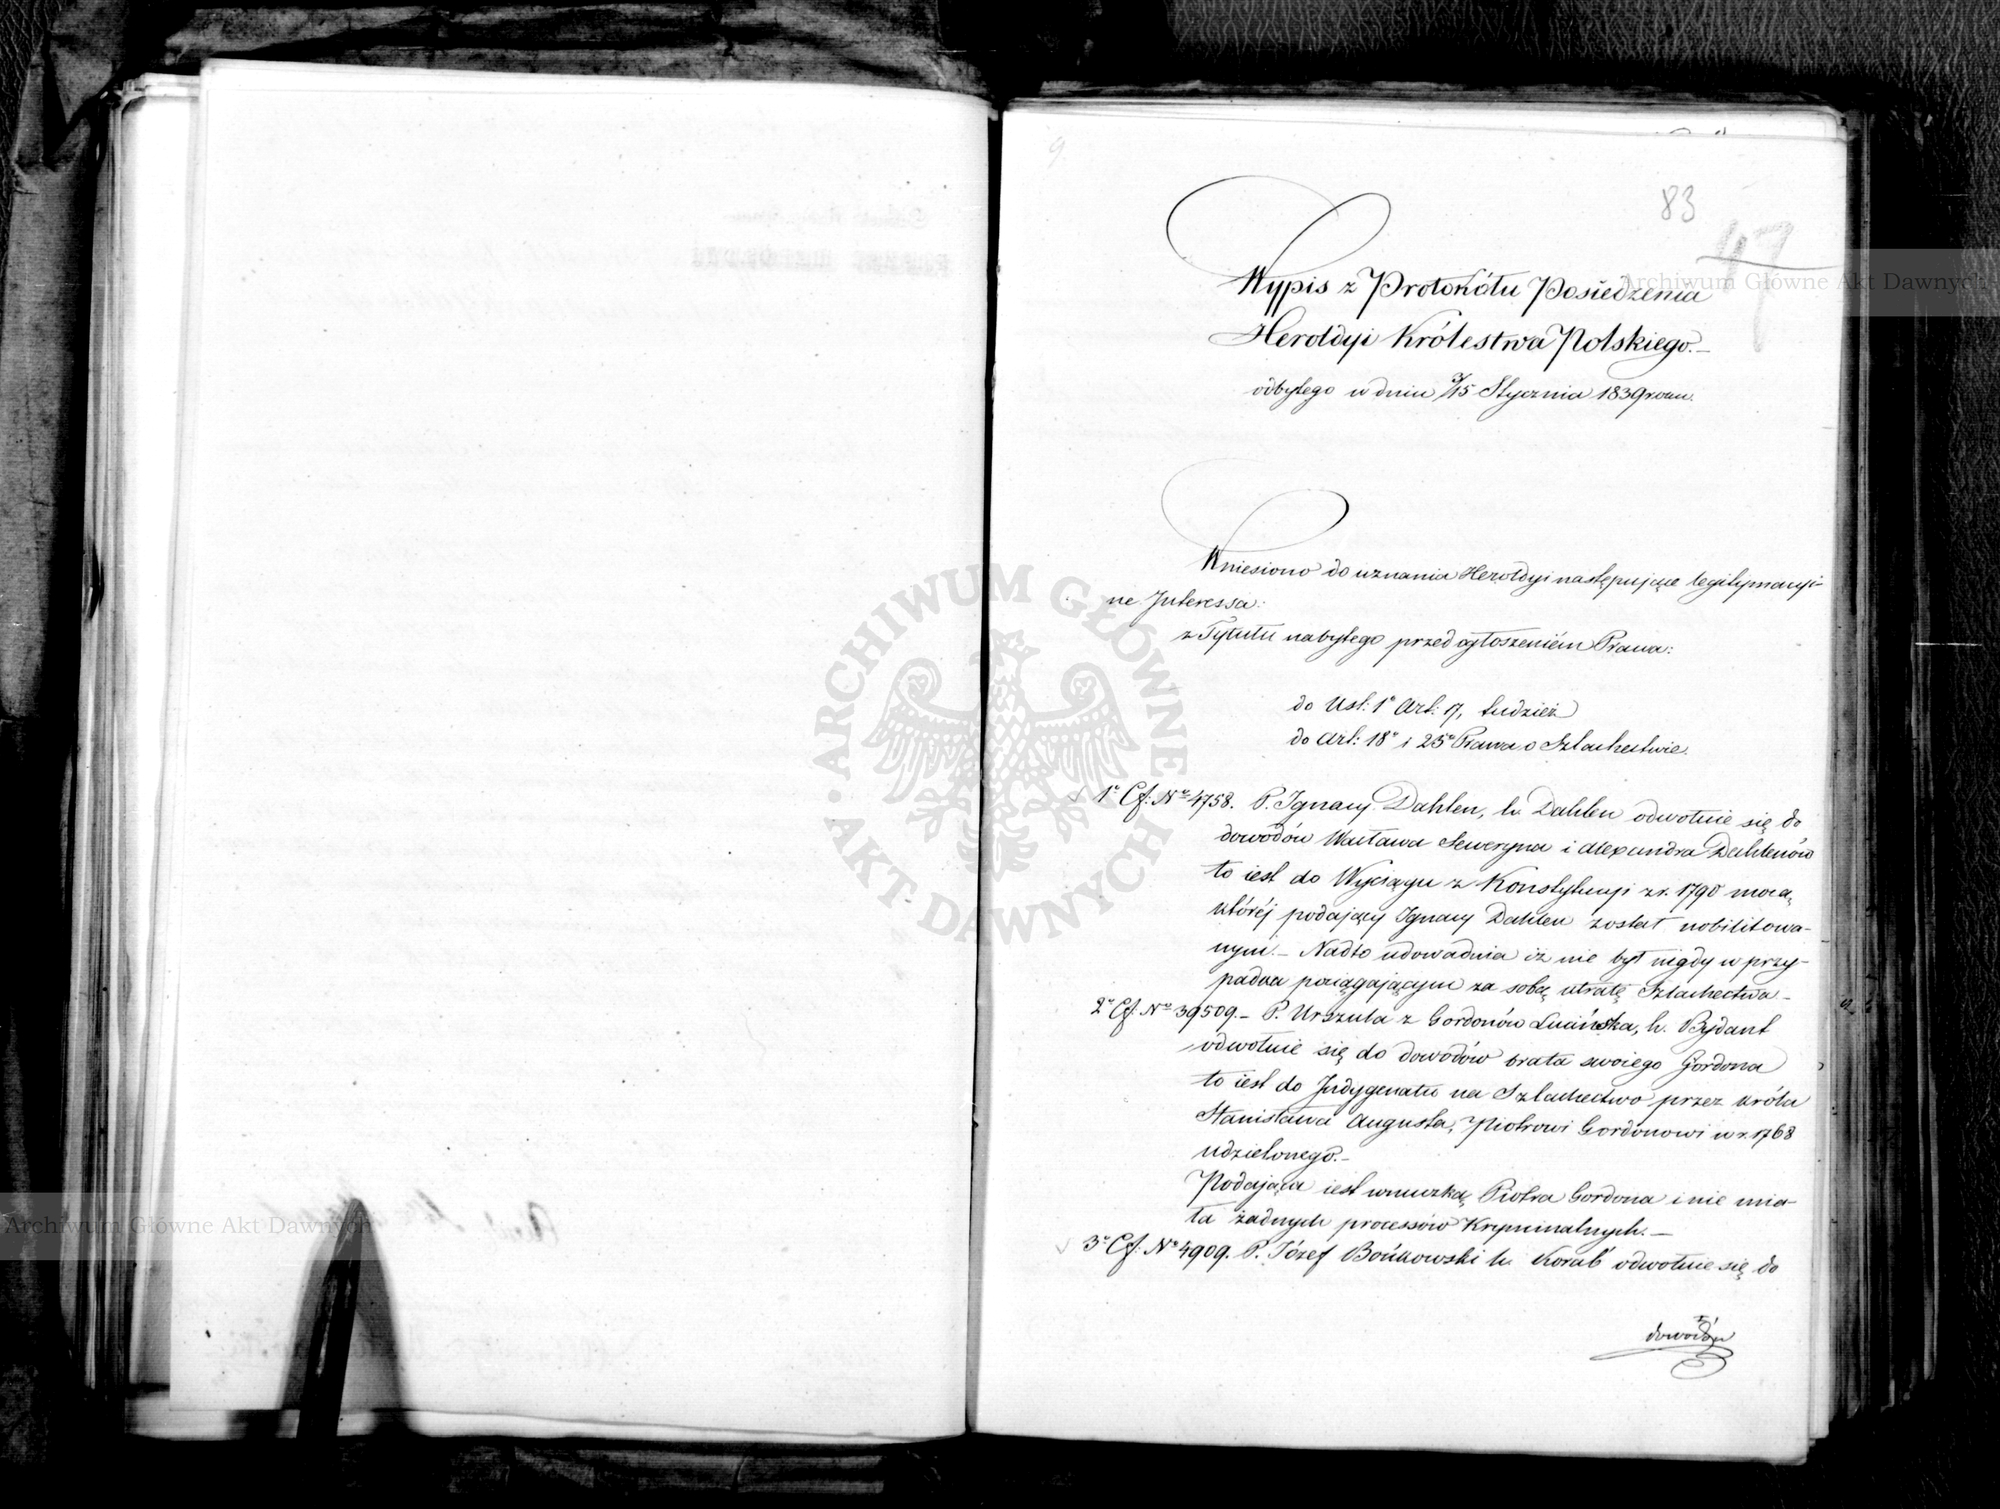 9
83
47
Wypis z Protokółu Posiedzenia
Heroldyi Królestwa Polskiego.—
odbytego w dniu 3/15 Stycznia 1839 roku.
Wniesiono do uznania Heroldyi następujące legitymacyi-
ne Interessa:
z Tytułu nabytego przed ogłoszeniem Prawa:
do Ust: 1° Art: 17, tudzież
do Art: 18° i 25° Prawa o Szlachectwie.
1° Cf: No 4758. P. Ignacy Dahlen, h. Dahlen odwołuie się do
dowodów Wacława Seweryna i Alexandra Dahlenów
to iest do Wyciągu z Konstytucyi z r. 1790 mocą
któréj podający Ignacy Dahlen został nobilitowa-
nym.— Nadto udowadnia iż nie był nigdy w przy-
padku pociągającym za sobą utratę Szlachectwa—
2° Cf: No 39509.— P. Urszula z Gordonów Lucińska, h. Bydant
odwołuie się do dowodów brata swoiego Gordona
to iest do Indygenatu na Szlachectwo przez króla
Stanisława Augusta, Piotrowi Gordonowi w r. 1768
udzielonego.—
Podająca iest wnuczką Piotra Gordona i nie mia-
ła żadnych processów Kryminalnych.—
3° Cf: No 4909. P. Józef Bońkowski h. Korab odwołuie się do
dowodów
Archiwum Główne Akt Dawnych
Archiwum Główne Akt Dawnych
ARCHIWUM GŁÓWNE • AKT DAWNYCH •